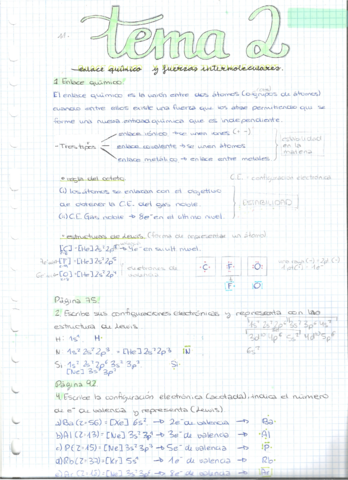 tema 2
enlace químico y fuerzas intermoleculares.
1. Enlace químico:
El enlace químico es la unión entre dos átomos (o grupos de átomos)
cuando entre ellos existe una fuerza que los atrae permitiendo que se
forme una nueva entidad química que es independiente.
enlace iónico → se unen iones (+ -)
- Tres tipos enlace covalente → se unen átomos
enlace metálico → enlace entre metales
estabilidad en la materia
• regla del octeto C.E. - configuración electrónica
(1) los átomos se enlazan con el objetivo
de obtener la C.E. del gas noble.
(2) C.E Gas noble → 8e⁻ en el último nivel.
ESTABILIDAD
- estructuras de Lewis (forma de representar un átomo)
[C] - [He] 2s² 2p² → 4e⁻ en su últ. nivel.
[F] - [He] 2s² 2p⁵
[O] - [He] 2s² 2p⁴
electrones de valencia
Página 75
2. Escribe sus configuraciones electrónicas y representa con las
estructura de Lewis
H: 1s¹ H·
N: 1s² 2s² 2p³ - [He] 2s² 2p³
Si: 1s² 2s² 2p⁶ 3s² 3p²
[Ne] 3s² 3p²
Página 92
4. Escribe la configuración electrónica (acotada), indica el número
de e⁻ de valencia y representa (Lewis)
a) Ba (Z=56) = [Xe] 6s² → 2e⁻ de valencia → Ba
b) Al (Z=13) = [Ne] 3s² 3p¹ → 3e⁻ de valencia → Al
c) P (Z=15) = [Ne] 3s² 3p³ → 5e⁻ de valencia → P
d) Rb (Z=37) = [Kr] 5s¹ → 1e⁻ de valencia → Rb